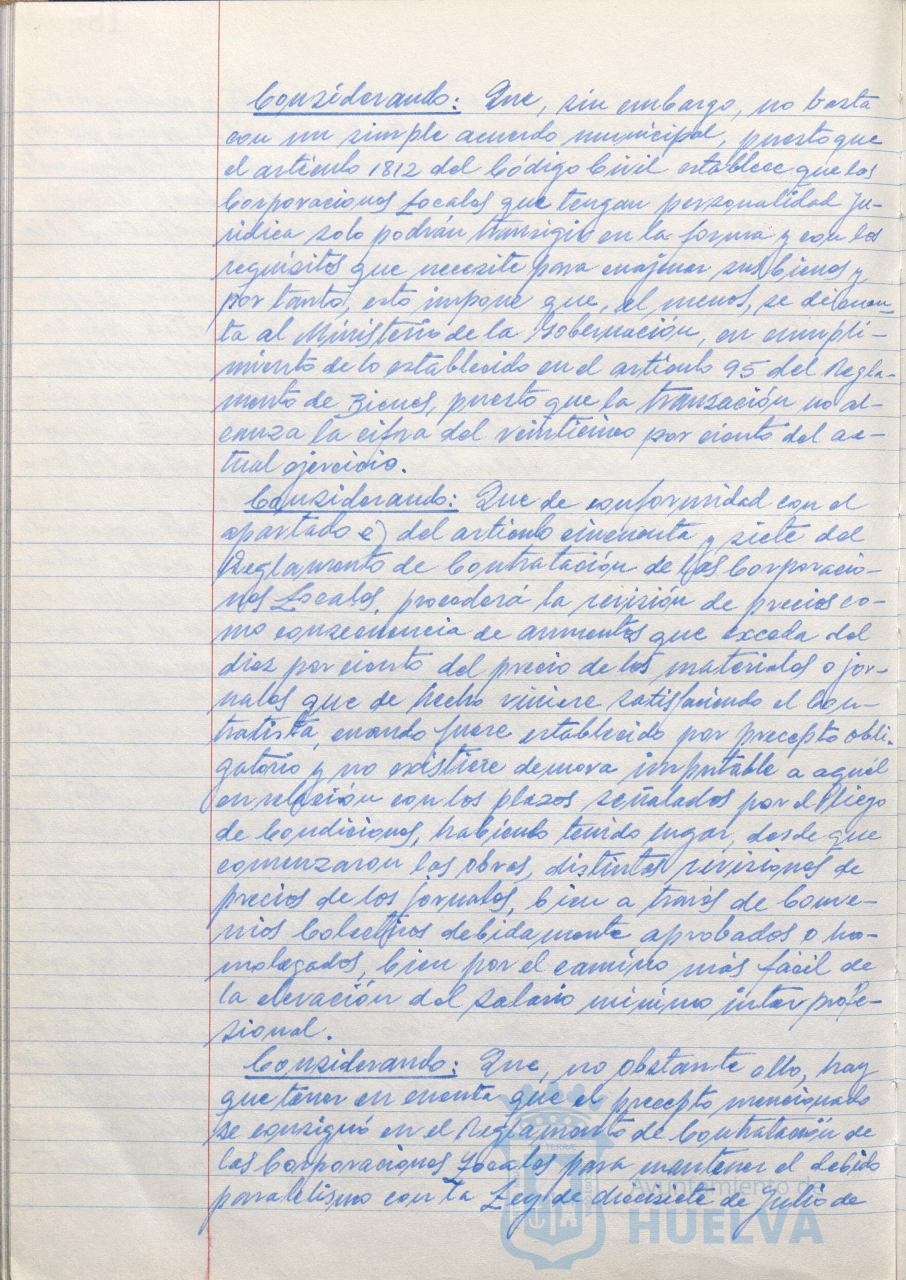 Considerando: Que, sin embargo, no basta
con un simple acuerdo municipal, puesto que
el artículo 1812 del Código Civil establece que las
Corporaciones Locales que tengan personalidad ju-
rídica solo podrán transigir en la forma y con los
requisitos que necesite para enajenar sus bienes y
por tanto, esto impone que, al menos, se dé cuen-
ta al Ministerio de la Gobernación, en cumpli-
miento de lo establecido en el artículo 95 del Regla-
mento de Bienes, puesto que la transación no al-
canza la cifra del veinticinco por ciento del ac-
tual ejercicio.
Considerando: Que de conformidad con el
apartado e) del artículo cincuenta y siete del
Reglamento de Contratación de las Corporacio-
nes Locales, procederá la revisión de precios co-
mo consecuencia de aumentos que exceda del
diez por ciento del precio de los materiales o jor-
nales que de hecho viniere satisfaciendo el Con-
tratista, cuando fuere establecido por precepto obli-
gatorio y no existiere demora imputable a aquél
en relación con los plazos señalados por el Pliego
de Condiciones, habiendo tenido lugar, desde que
comenzaron las obras, distintas revisiones de
precios de los jornales, bien a través de Conve-
nios Colectivos debidamente aprobados o ho-
mologados, bien por el camino más fácil de
la elevación del salario mínimo interprofe-
sional.
Considerando: Que, no obstante ello, hay
que tener en cuenta que el precepto mencionado
se consignó en el Reglamento de Contratación de
las Corporaciones Locales para mantener el debido
paralelismo con la Ley de diecisiete de Julio de
Ayuntamiento de
HUELVA